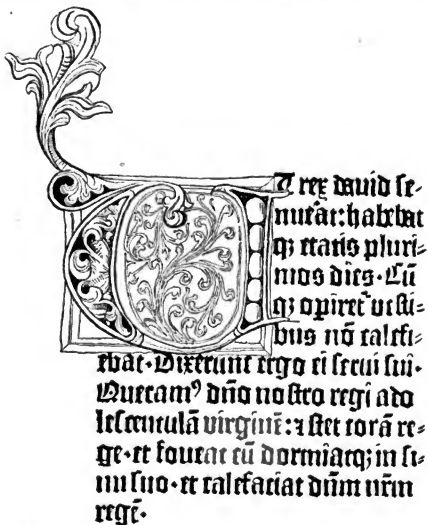 ET rex dauid se-
nuĕat: habebat
qȝ etatis pluri-
mos dies. Cū
qȝ opiret᷑ uesti-
bus nō calefi-
ebat. Dixerunt ergo ei serui sui.
Queramꝰ dño nostro regi ado
lescentulā virginē: ⁊ stet corā re-
ge. et foueat eū dormiatqȝ in si-
nu suo. et calefaciat dñm nr̄m
regē.